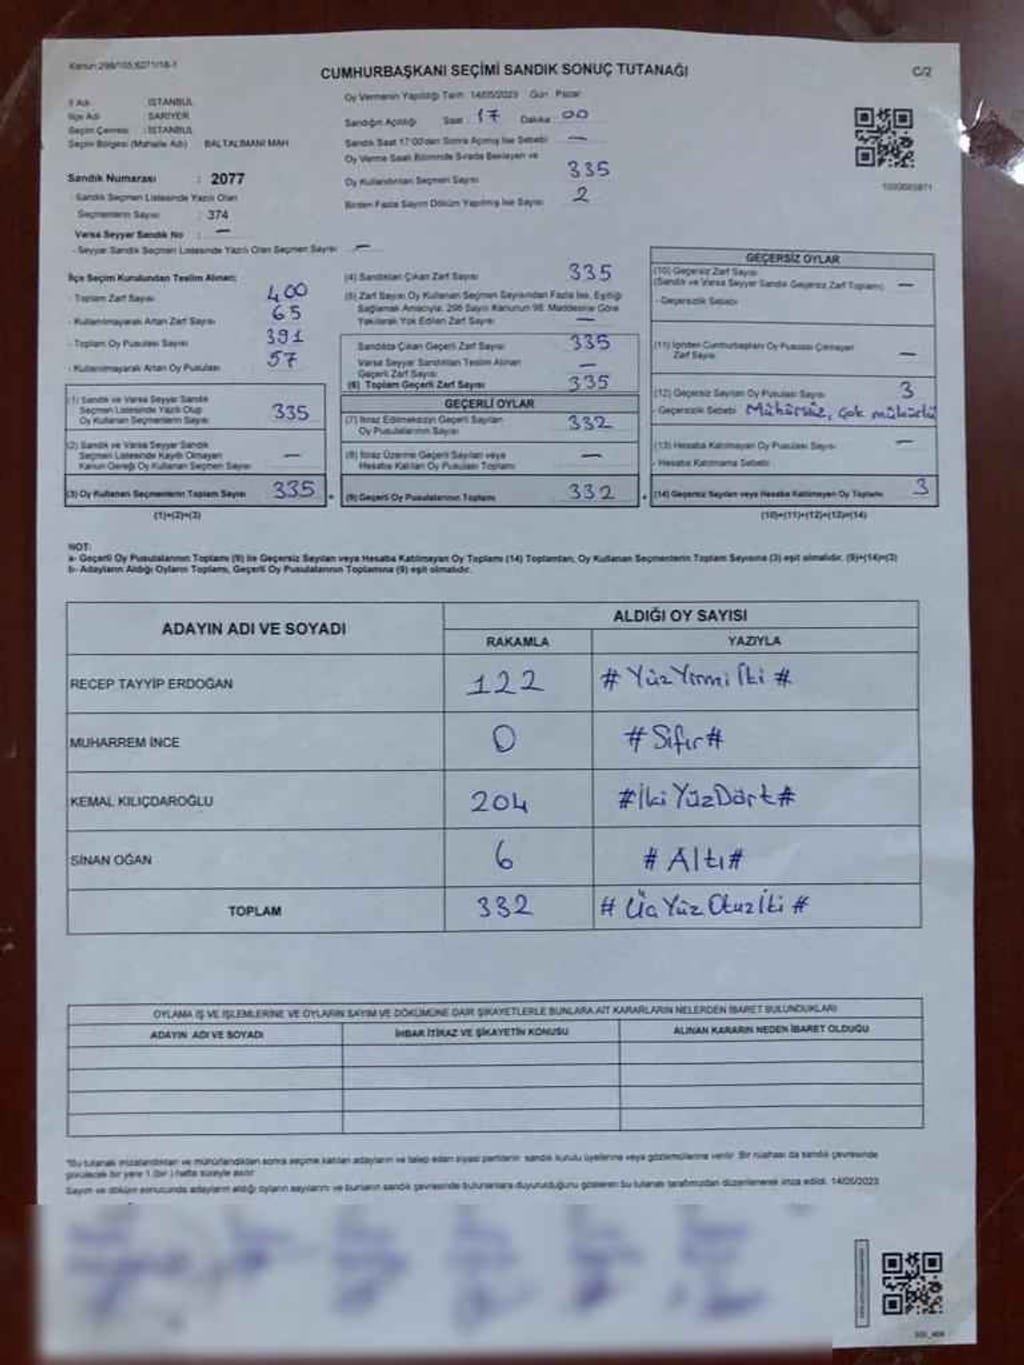 Kanun:298/105,6271/18-1
CUMHURBAŞKANI SEÇİMİ SANDIK SONUÇ TUTANAĞI
C/2
İl Adı : İSTANBUL
İlçe Adı : SARIYER
Seçim Çevresi : İSTANBUL
Seçim Bölgesi (Mahalle Adı) BALTALİMANI MAH
Sandık Numarası : 2077
Sandık Seçmen Listesinde Yazılı Olan
Seçmenlerin Sayısı : 374
Varsa Seyyar Sandık No : —
- Seyyar Sandık Seçmen Listesinde Yazılı Olan Seçmen Sayısı : —
Oy Vermenin Yapıldığı Tarih: 14/05/2023 Gün: Pazar
Sandığın Açıldığı Saat : 17 Dakika : 00
Sandık Saat 17:00'den Sonra Açılmış İse Sebebi : —
Oy Verme Saati Bitiminde Sırada Bekleyen ve
Oy Kullandırılan Seçmen Sayısı : 335
Birden Fazla Sayım Döküm Yapılmış İse Sayısı : 2
İlçe Seçim Kurulundan Teslim Alınan:
- Toplam Zarf Sayısı : 400
- Kullanılmayarak Artan Zarf Sayısı : 65
- Toplam Oy Pusulası Sayısı : 391
- Kullanılmayarak Artan Oy Pusulası : 57
(1) Sandık ve Varsa Seyyar Sandık
Seçmen Listesinde Yazılı Olup
Oy Kullanan Seçmenlerin Sayısı : 335
(2) Sandık ve Varsa Seyyar Sandık
Seçmen Listesinde Kayıtlı Olmayan
Kanun Gereği Oy Kullanan Seçmen Sayısı —
(3) Oy Kullanan Seçmenlerin Toplam Sayısı 335
(1)+(2)=(3)
(4) Sandıktan Çıkan Zarf Sayısı : 335
(5) Zarf Sayısı Oy Kullanan Seçmen Sayısından Fazla İse, Eşitliği
Sağlamak Amacıyla, 298 Sayılı Kanunun 98. Maddesine Göre
Yakılarak Yok Edilen Zarf Sayısı : —
Sandıkta Çıkan Geçerli Zarf Sayısı : 335
Varsa Seyyar Sandıktan Teslim Alınan
Geçerli Zarf Sayısı : —
(6) Toplam Geçerli Zarf Sayısı : 335
GEÇERLİ OYLAR
(7) İtiraz Edilmeksizin Geçerli Sayılan
Oy Pusulalarının Sayısı : 332
(8) İtiraz Üzerine Geçerli Sayılan veya
Hesaba Katılan Oy Pusulası Toplamı —
(9) Geçerli Oy Pusulalarının Toplamı : 332
GEÇERSİZ OYLAR
(10) Geçersiz Zarf Sayısı
(Sandık ve Varsa Seyyar Sandık Geçersiz Zarf Toplamı) : —
- Geçersizlik Sebebi :
(11) İçinden Cumhurbaşkanı Oy Pusulası Çıkmayan
Zarf Sayısı : —
(12) Geçersiz Sayılan Oy Pusulası Sayısı : 3
- Geçersizlik Sebebi : Mühürsüz, çok mühürlü
(13) Hesaba Katılmayan Oy Pusulası Sayısı : —
- Hesaba Katılmama Sebebi :
(14) Geçersiz Sayılan veya Hesaba Katılmayan Oy Toplamı 3
(10)+(11)+(12)+(13)=(14)
NOT:
a- Geçerli Oy Pusulalarının Toplamı (9) ile Geçersiz Sayılan veya Hesaba Katılmayan Oy Toplamı (14) Toplamları, Oy Kullanan Seçmenlerin Toplam Sayısına (3) eşit olmalıdır. (9)+(14)=(3)
b- Adayların Aldığı Oyların Toplamı, Geçerli Oy Pusulalarının Toplamına (9) eşit olmalıdır.
ADAYIN ADI VE SOYADI
ALDIĞI OY SAYISI
RAKAMLA YAZIYLA
RECEP TAYYİP ERDOĞAN 122 # Yüz Yirmi İki #
MUHARREM İNCE 0 # Sıfır #
KEMAL KILIÇDAROĞLU 204 # İki Yüz Dört #
SİNAN OĞAN 6 # Altı #
TOPLAM 332 # Üç Yüz Otuz İki #
OYLAMA İŞ VE İŞLEMLERİNE VE OYLARIN SAYIM VE DÖKÜMÜNE DAİR ŞİKAYETLERLE BUNLARA AİT KARARLARIN NELERDEN İBARET BULUNDUKLARI
ADAYIN ADI VE SOYADI İHBAR İTİRAZ VE ŞİKAYETİN KONUSU ALINAN KARARIN NEDEN İBARET OLDUĞU
*Bu tutanak imzalandıktan ve mühürlendikten sonra seçime katılan adayların ve talep eden siyasi partilerin sandık kurulu üyelerine veya gözlemcilerine verilir. Bir nüshası da sandık çevresinde
görülecek bir yere 1 (bir) hafta süreyle asılır.
Sayım ve döküm sonucunda adayların aldığı oyların sayılarını ve bunların sandık çevresinde bulunanlara duyurulduğunu gösteren bu tutanak tarafımızdan düzenlenerek imza edildi. 14/05/2023